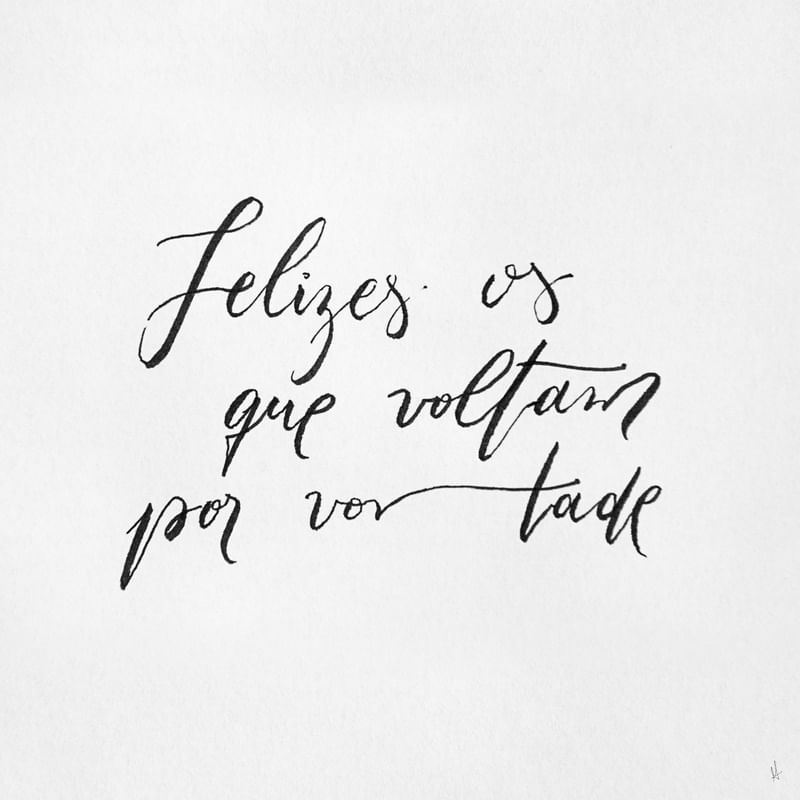 Felizes os
que voltam
por vontade